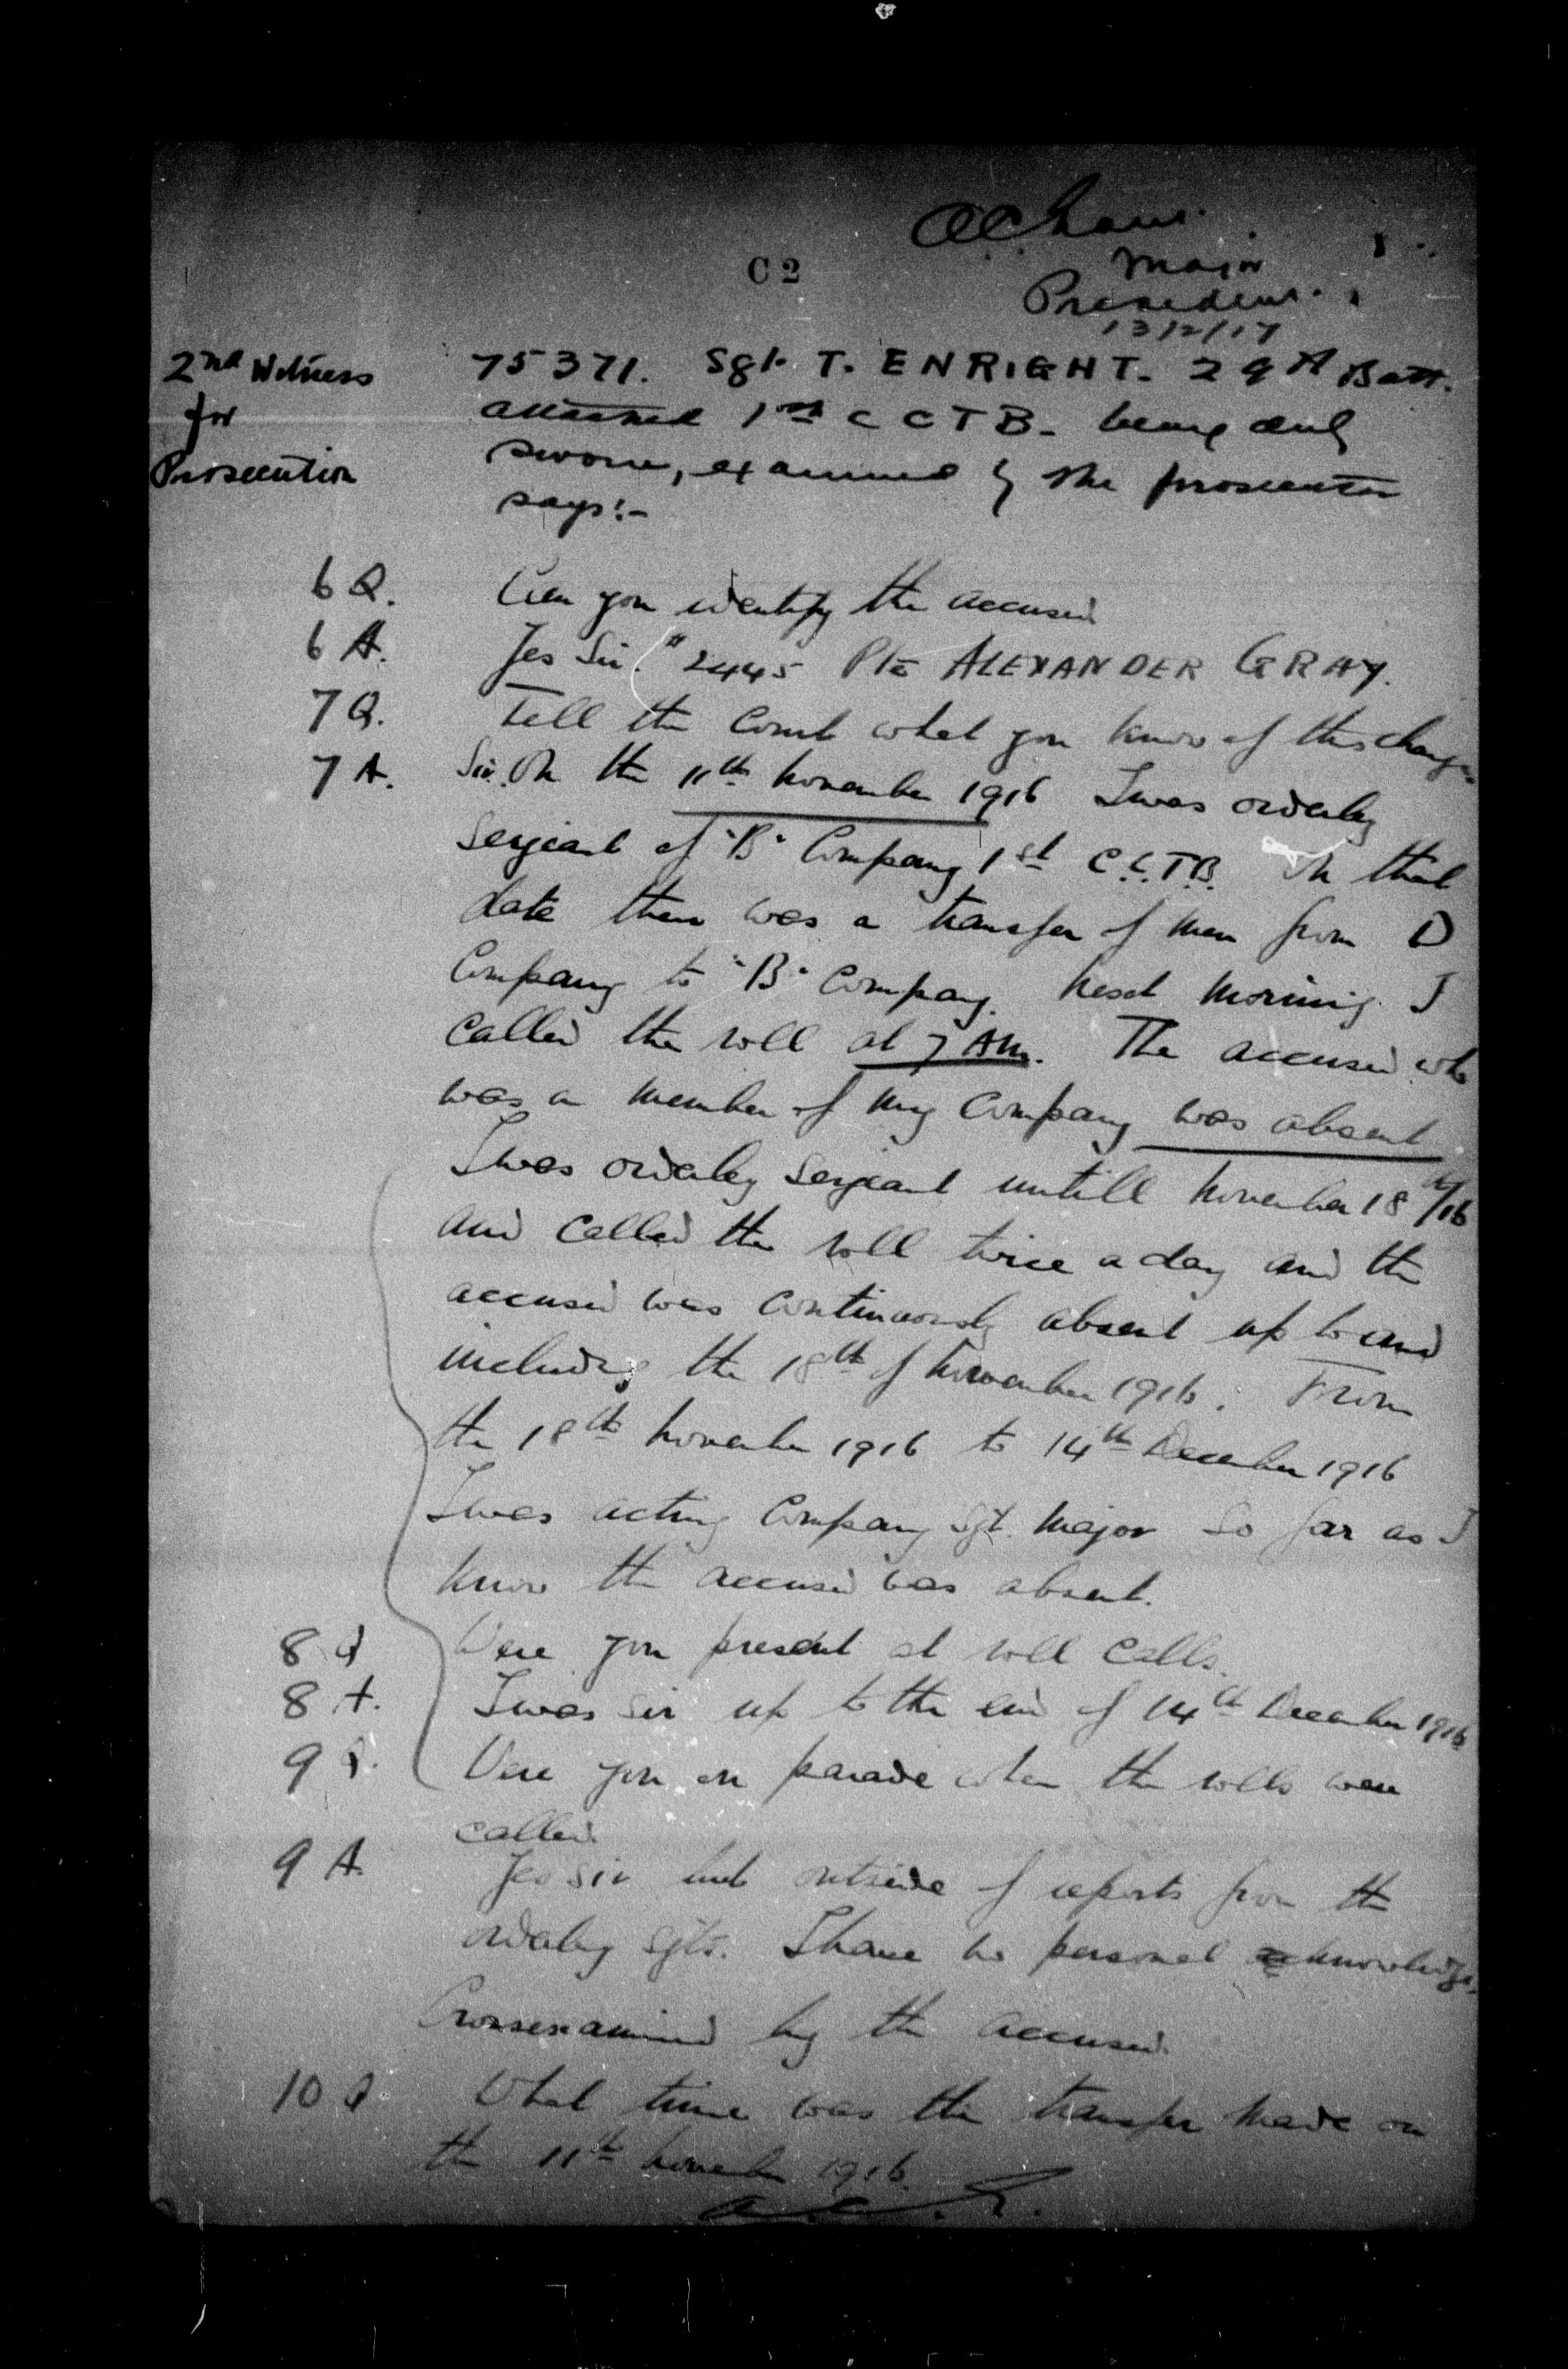 C2
Major
President.
13/2/17
2nd Witness
for
Prosecution
75371. Sgt. T. ENRIGHT. 29th Batt.
attached 1st C C T B. being duly
sworn, examined by the prosecutor
says:-
6 Q. Can you identify the accused
6 A. Yes Sir. # 2445 Pte ALEXANDER GRAY.
7 Q. Tell the Court what you know of this charge.
7 A. Sir. On the 11th November 1916 I was orderly
Sergeant of "B" Company 1st C.C.T.B. On that
date there was a transfer of men from D
Company to "B" Company. Next morning I
called the roll at 7 AM. The accused who
was a member of my Company was absent
I was orderly Sergeant untill November 18th/16
and called the roll twice a day and the
accused was continuously absent up to and
including the 18th of November 1916. From
the 18th November 1916 to 14th December 1916
I was acting Company Sgt. Major so far as I
know the accused was absent.
8 Q Were you present at roll calls.
8 A. I was Sir up to the end of 14th December 1916
9 Q. Were you on parade when the rolls were
called.
9 A. Yes Sir but outside of reports from the
orderly Sgts. I have no personal knowledge.
Crossexamined by the accused.
10 Q What time was the transfer made on
the 11th November 1916.